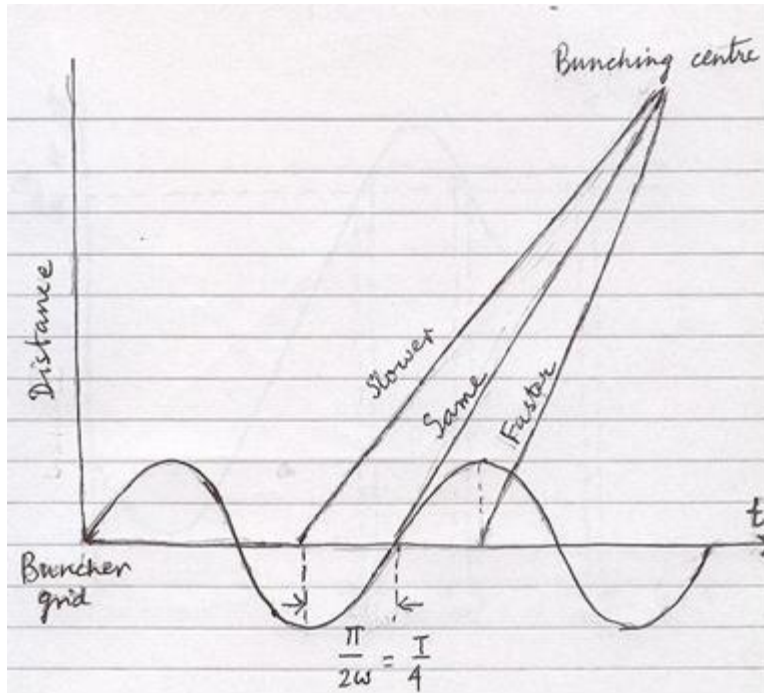 Bunching centre
Distance
Slower
Same
Faster
t
Buncher
grid
π/2ω = T/4